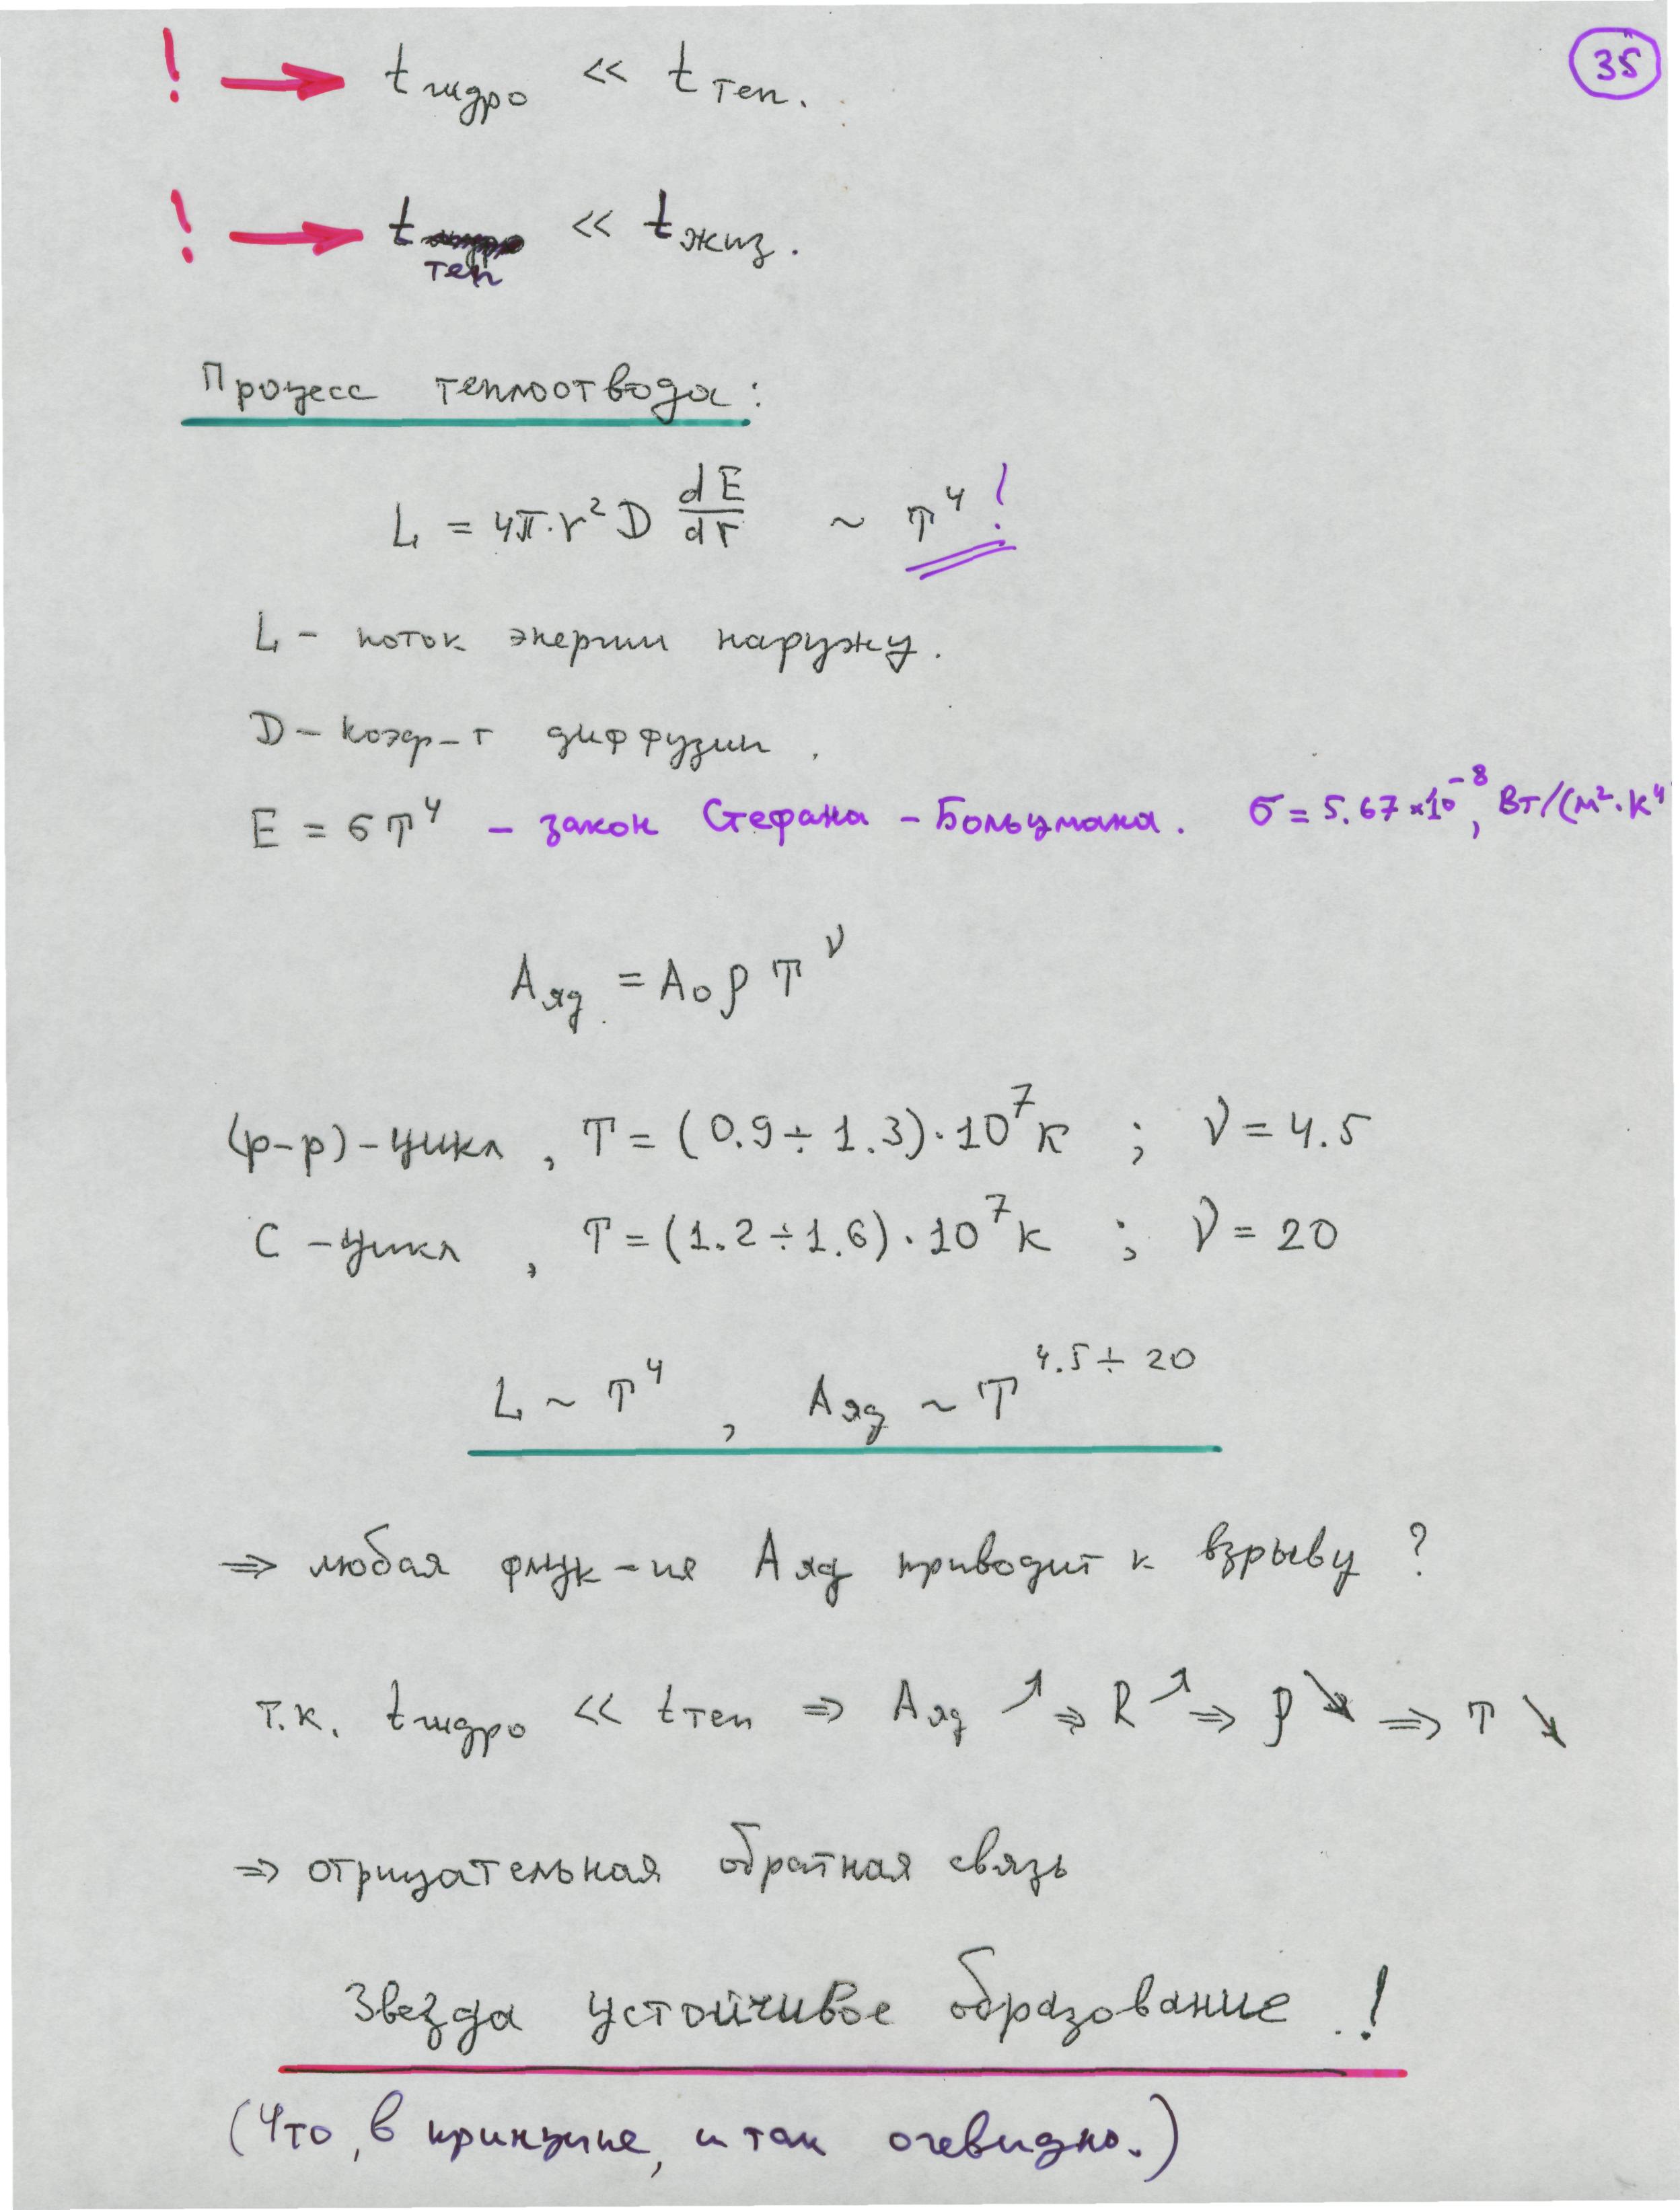 35
! → t гидро << t теп.
! → t теп << t жиз.
Процесс теплоотвода:
L = 4π·r² D dE/dr ~ T⁴!
L - поток энергии наружу.
D - коэф-т диффузии.
E = σT⁴ - закон Стефана - Больцмана. σ = 5.67×10⁻⁸, Вт/(м²·К⁴
A яд. = A₀ ρ T^ν
(p-p) - цикл, T = (0.9 ÷ 1.3)·10⁷ К ; ν = 4.5
C - цикл, T = (1.2 ÷ 1.6)·10⁷ К ; ν = 20
L ~ T⁴, A яд ~ T^4.5 ÷ 20
⇒ любая флук-ия A яд приводит к взрыву ?
т.к. t гидро << t теп ⇒ A яд ↗ ⇒ R ↗ ⇒ ρ ↘ ⇒ T ↘
⇒ отрицательная обратная связь
Звезда устойчивое образование.!
(Что, в принципе, и так очевидно.)